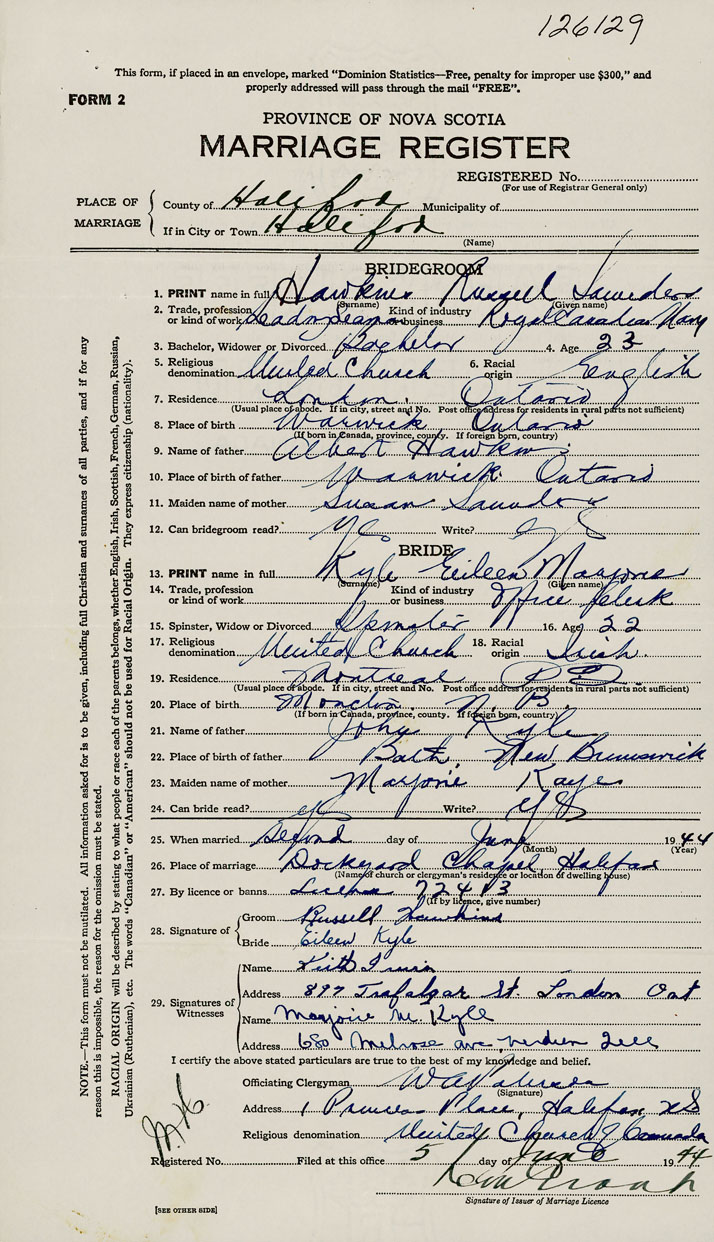 126129
This form, if placed in an envelope, marked "Dominion Statistics—Free, penalty for improper use $300," and
properly addressed will pass through the mail "FREE".
FORM 2
PROVINCE OF NOVA SCOTIA
MARRIAGE REGISTER
REGISTERED No.
(For use of Registrar General only)
PLACE OF MARRIAGE
County of Halifax Municipality of
If in City or Town Halifax
(Name)
BRIDEGROOM
1. PRINT name in full Hawkins Russell Saunders
(Surname) (Given name)
2. Trade, profession or kind of work Leading Seaman Kind of industry or business Royal Canadian Navy
3. Bachelor, Widower or Divorced Bachelor 4. Age 23
5. Religious denomination United Church 6. Racial origin English
7. Residence London, Ontario
(Usual place of abode. If in city, street and No. Post office address for residents in rural parts not sufficient)
8. Place of birth Warwick Ontario
(If born in Canada, province, county. If foreign born, country)
9. Name of father Albert Hawkins
10. Place of birth of father Warwick Ontario
11. Maiden name of mother Susan Saunders
12. Can bridegroom read? Yes Write? Yes
BRIDE
13. PRINT name in full Kyle Eileen Marjorie
(Surname) (Given name)
14. Trade, profession or kind of work Kind of industry or business Office Clerk
15. Spinster, Widow or Divorced Spinster 16. Age 22
17. Religious denomination United Church 18. Racial origin Irish
19. Residence Montreal, P.Q.
(Usual place of abode. If in city, street and No. Post office address for residents in rural parts not sufficient)
20. Place of birth Moncton N. B.
(If born in Canada, province, county. If foreign born, country)
21. Name of father John Kyle
22. Place of birth of father Bath, New Brunswick
23. Maiden name of mother Marjorie Kayes
24. Can bride read? yes Write? yes
25. When married Second day of June 1944
(Month) (Year)
26. Place of marriage Dockyard Chapel, Halifax
(Name of church or clergyman's residence or location of dwelling house)
27. By licence or banns License 72413
(If by licence, give number)
28. Signature of
Groom Russell Hawkins
Bride Eileen Kyle
29. Signatures of Witnesses
Name Keith
Address 897 Trafalgar St London Ont
Name Marjorie M. Kyle
Address 680 Melrose ave, Verdun Que
I certify the above stated particulars are true to the best of my knowledge and belief.
Officiating Clergyman
(Signature)
Address 1 Princess Place, Halifax NS
Religious denomination United Church of Canada
Registered No. Filed at this office 5 day of June 1944
Signature of Issuer of Marriage Licence
[SEE OTHER SIDE]
NOTE.—This form must not be mutilated. All information asked for is to be given, including full Christian and surnames of all parties, and if for any
reason this is impossible, the reason for the omission must be stated.
RACIAL ORIGIN will be described by stating to what people or race each of the parents belongs, whether English, Irish, Scottish, French, German, Russian,
Ukrainian (Ruthenian), etc. The words "Canadian" or "American" should not be used for Racial Origin. They express citizenship (nationality).